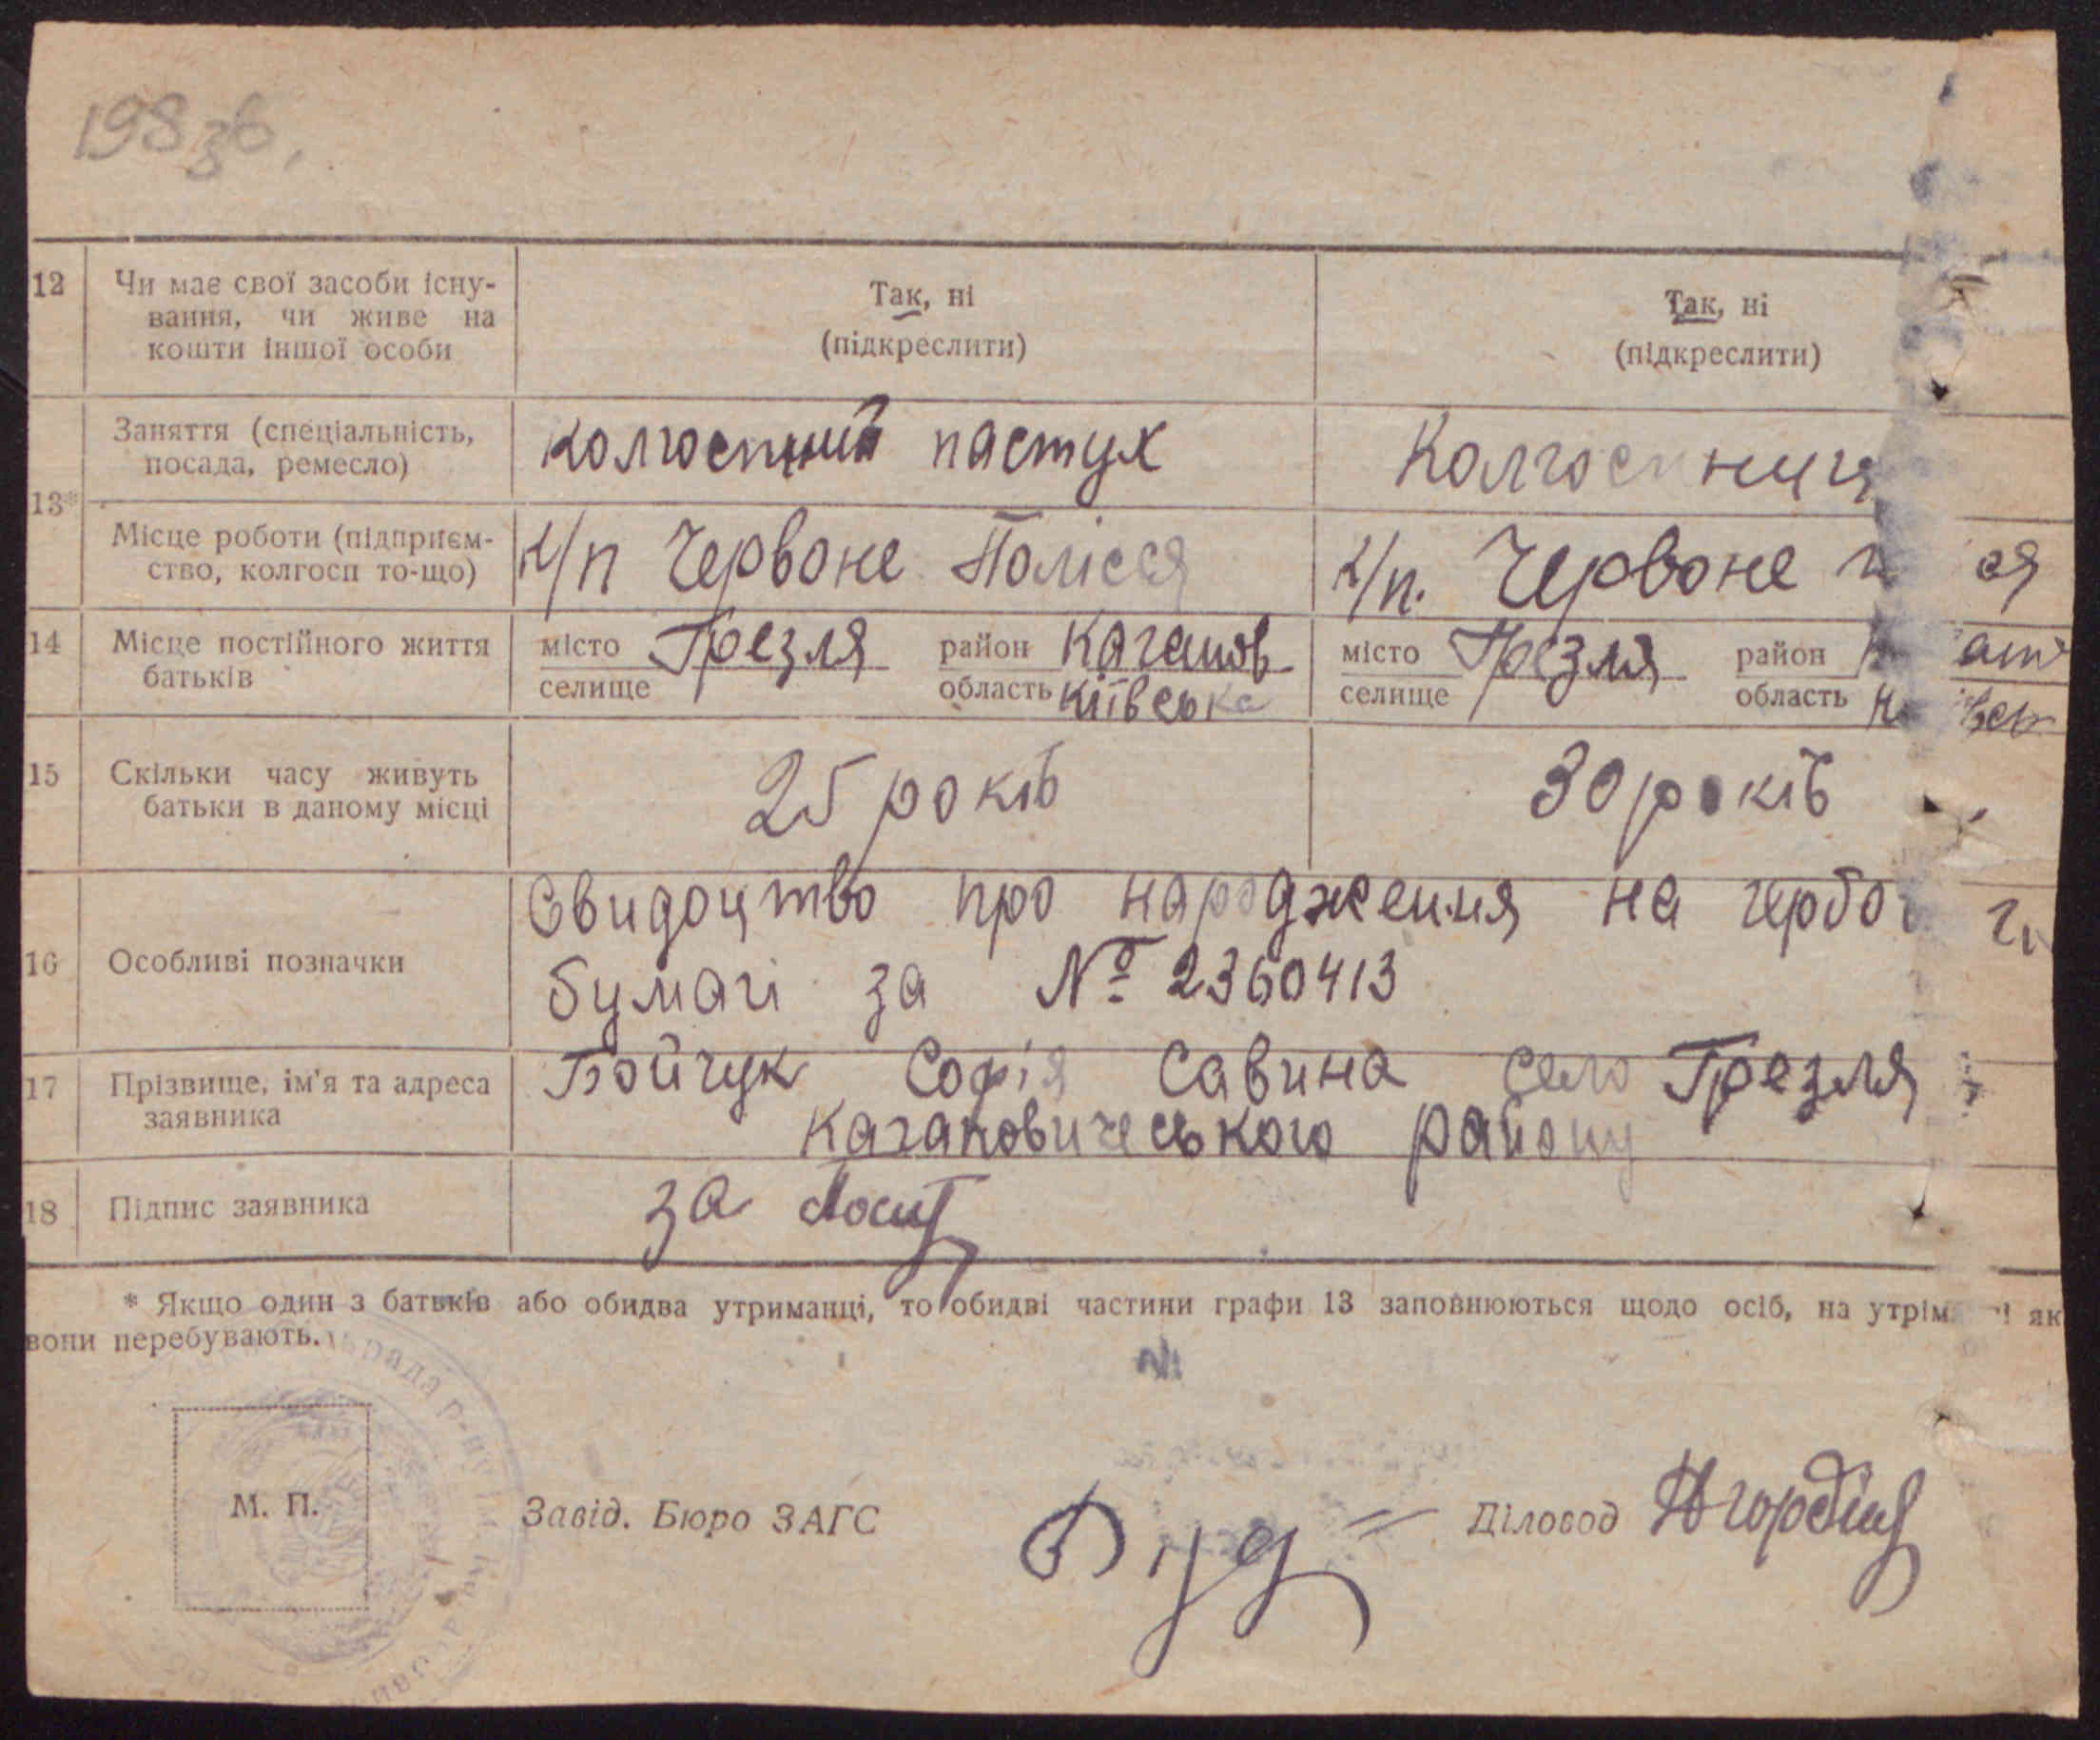 198 зв.
12 Чи має свої засоби існу- Так, ні Так, ні
вання, чи живе на (підкреслити) (підкреслити)
кошти іншої особи
Заняття (спеціальність, колгоспний пастух Колгоспниця
посада, ремесло)
13*
Місце роботи (підприєм- к/п Червоне Полісся к/п. Червоне
ство, колгосп то-що)
14 Місце постійного життя місто Грезля район Каганов місто Грезля район
батьків селище область Київська селище область
15 Скільки часу живуть 25 років 30 років
батьки в даному місці
Свидоцтво про народження на гербо
16 Особливі позначки бумагі за № 2360413
17 Прізвище, ім'я та адреса Бойчук Софія Савина село Грезля
заявника Кагановичеського району
18 Підпис заявника за
* Якщо один з батьків або обидва утриманці, то обидві частини графи 13 заповнюються щодо осіб, на утрім як
вони перебувають.
М. П. Завід. Бюро ЗАГС Діловод